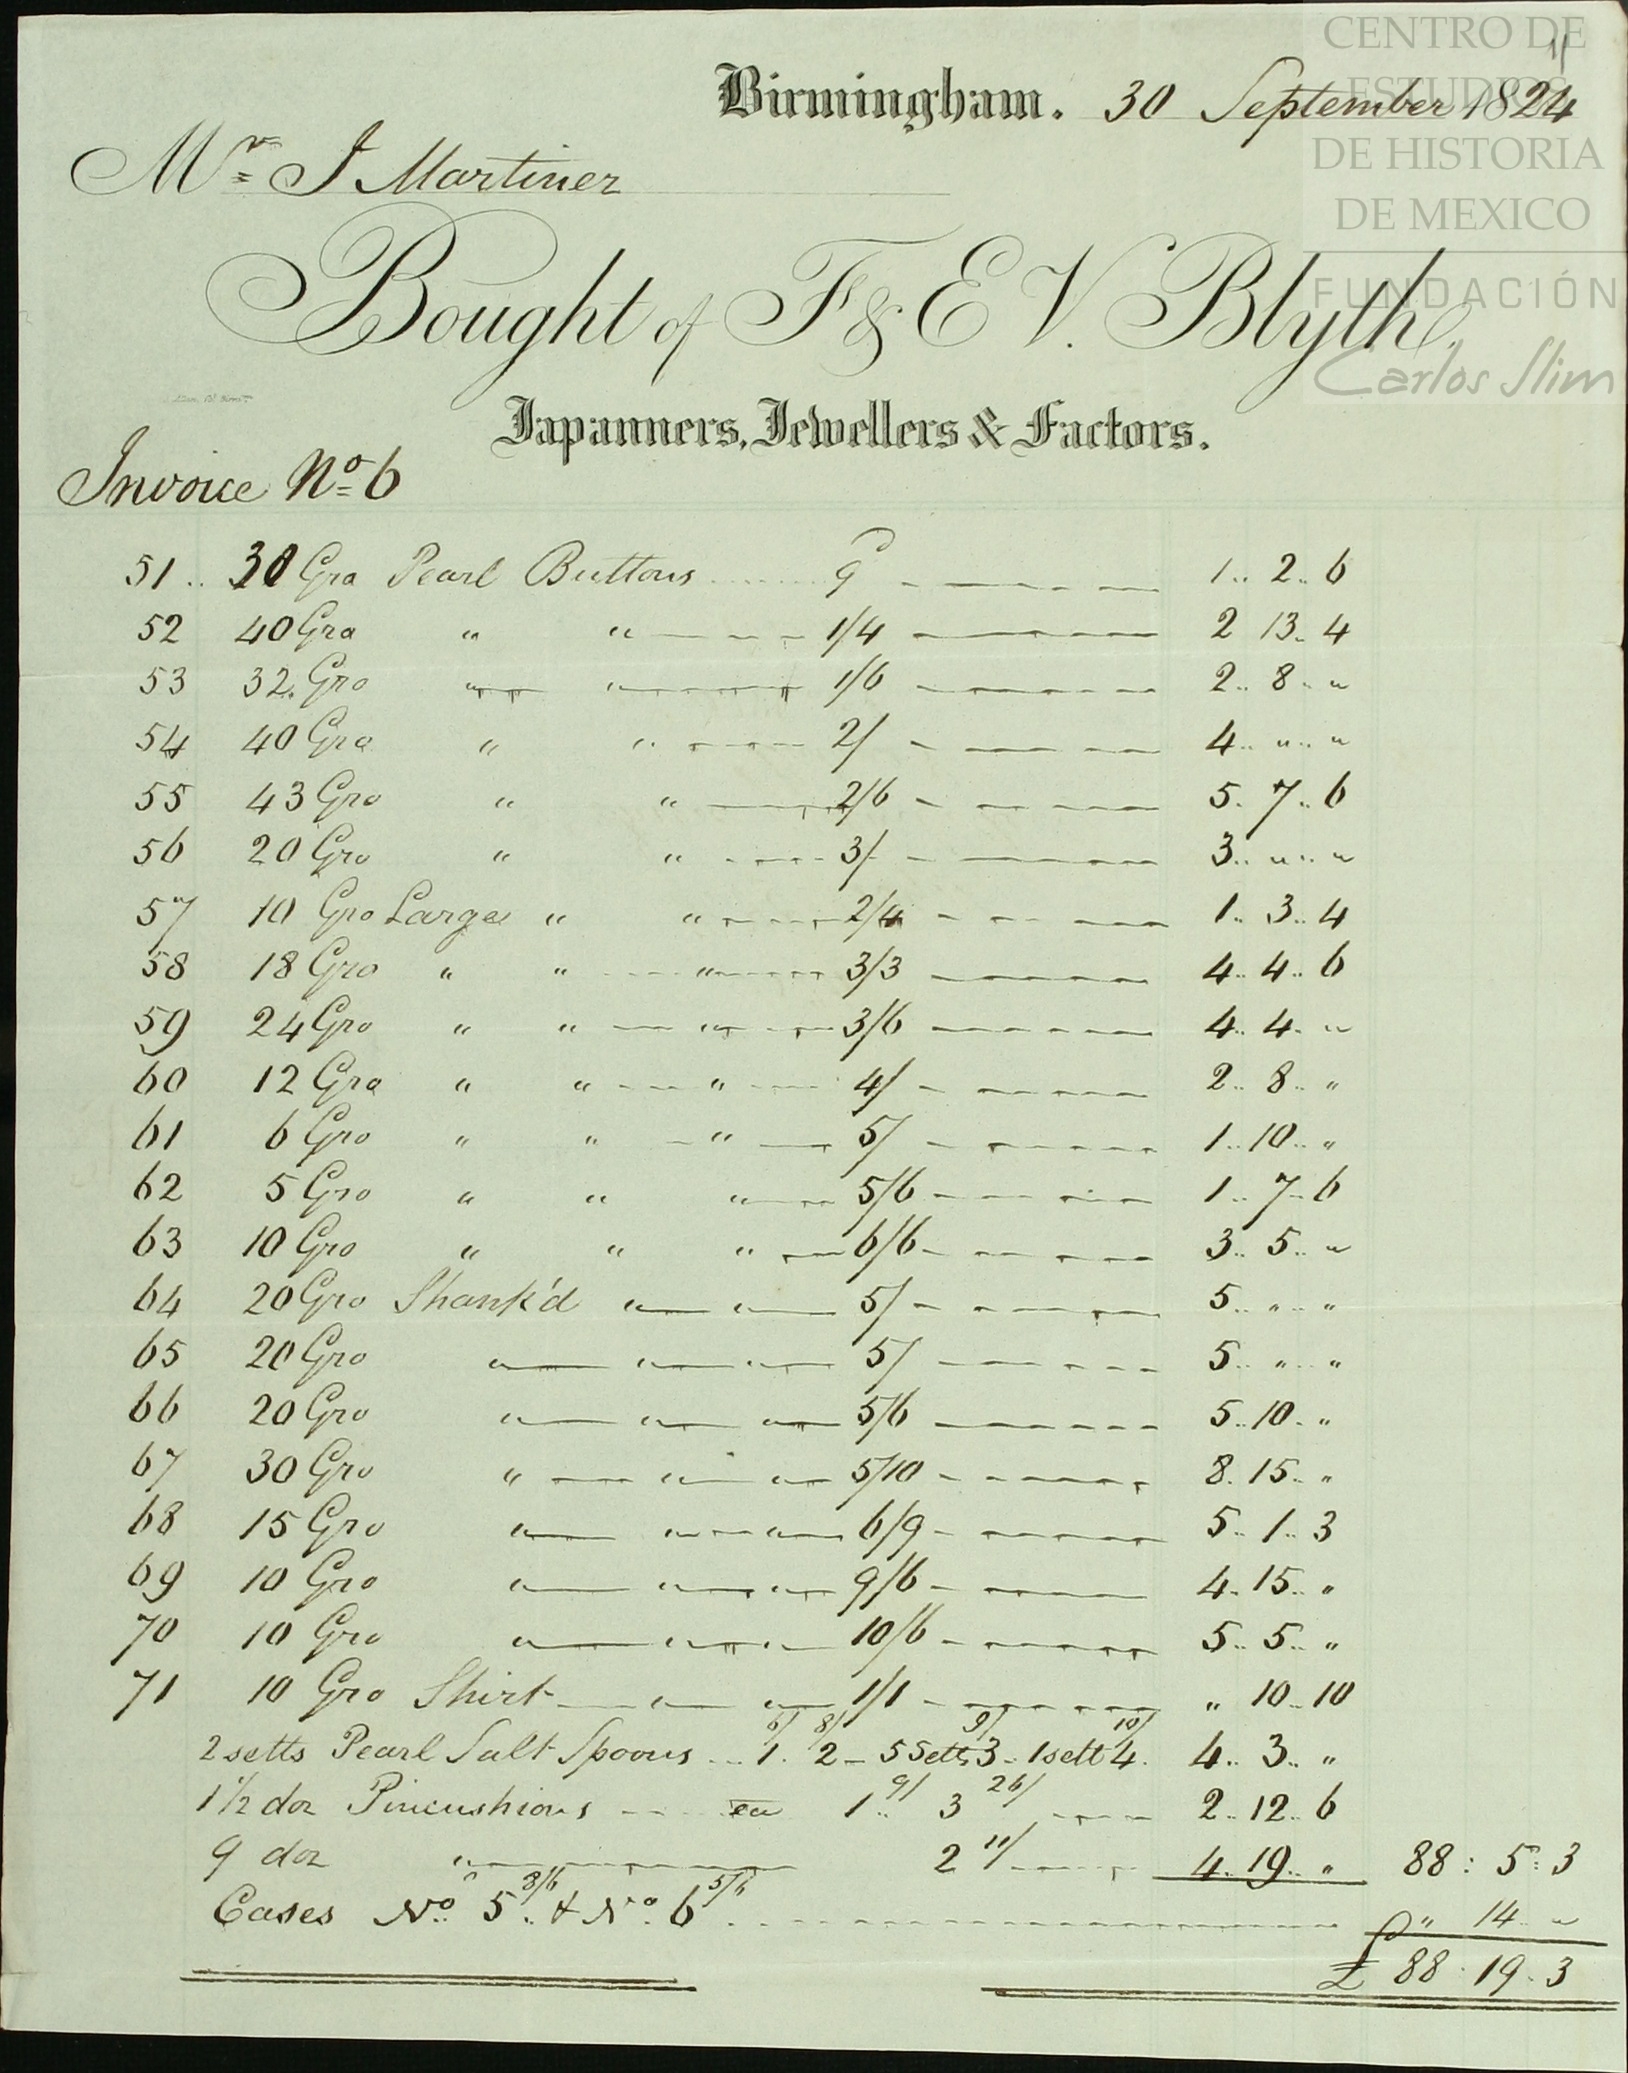 11
Birmingham. 30 September 1824
Mr J Martinez
Bought of F & E V. Blyth,
Japanners, Jewellers & Factors.
Invoice No 6
51 .. 30 Gro Pearl Buttons 9 1 .. 2 .. 6
52 40 Gro " " 1/4 2 13 .. 4
53 32 Gro " " 1/6 2 .. 8 .. "
54 40 Gro " " 2/ 4 .. " .. "
55 43 Gro " " 2/6 5 . 7 .. 6
56 20 Gro " " 3/ 3 .. " .. "
57 10 Gro Large " " 2/4 1 .. 3 .. 4
58 18 Gro " " " 3/3 4 .. 4 .. 6
59 24 Gro " " " 3/6 4 .. 4 . "
60 12 Gro " " " 4/ 2 .. 8 .. "
61 6 Gro " " " 5/ 1 .. 10 .. "
62 5 Gro " " " 5/6 1 .. 7 .. 6
63 10 Gro " " " 6/6 3 .. 5 .. "
64 20 Gro Shank'd " " 5/ 5 .. " .. "
65 20 Gro " " " 5/ 5 .. " .. "
66 20 Gro " " " 5/6 5 .. 10 .. "
67 30 Gro " " " 5/10 8 . 15 .. "
68 15 Gro " " " 6/9 5 .. 1 .. 3
69 10 Gro " " " 9/6 4 . 15 .. "
70 10 Gro " " " 10/6 5 .. 5 .. "
71 10 Gro Shirt " " 1/1 " 10 .. 10
2 setts Pearl Salt Spoons 1 6/ 2 8/ 5 Setts 3 9/ 1 sett 4 10/ 4 .. 3 .. "
1 1/2 doz Pincushions ea 1 9/ 3 26/ 2 .. 12 .. 6
9 doz " 2 11/ 4 .. 19 .. " 88 : 5 : 3
Cases No 5 8/6 & No 6 5/6 " 14 "
£ 88 . 19 . 3
CENTRO DE
ESTUDIOS
DE HISTORIA
DE MEXICO
FUNDACIÓN
Carlos Slim